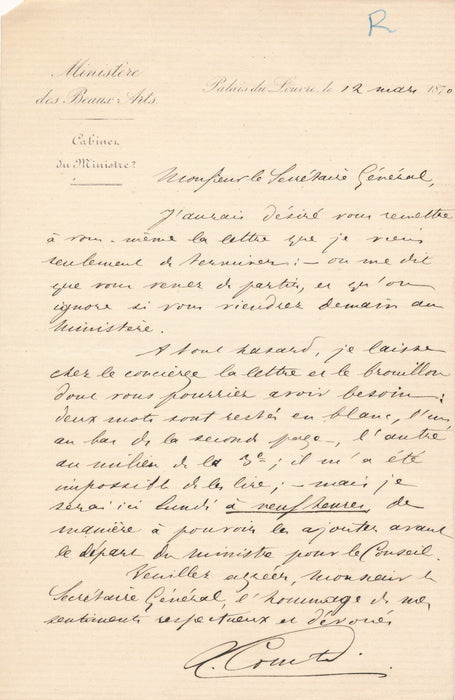 R
Ministère
des Beaux Arts.
Palais du Louvre, le 12 mars 1870
Cabinet
du Ministre
Monsieur le Secrétaire Général,
J'aurais désiré vous remettre
à vous-même la lettre que je viens
seulement de terminer: — on me dit
que vous venez de partir, et qu'on
ignore si vous viendrez demain au
Ministère.
A tout hasard, je laisse
chez le concierge la lettre et le brouillon
dont vous pourriez avoir besoin:
deux mots sont restés en blanc, l'un
au bas de la seconde page, l'autre
au milieu de la 3e; il m'a été
impossible de les lire; — mais je
serai ici lundi à neuf heures de
manière à pouvoir les ajouter avant
le départ du ministre pour le Conseil.
Veuillez agréer, Monsieur le
Secrétaire Général, l'hommage de mes
sentiments respectueux et dévoués